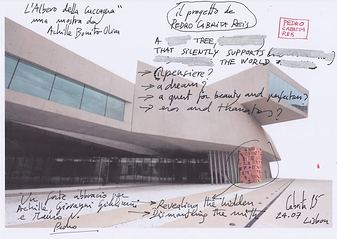 L'Albero della Cuccagna"
una mostra di
Achille Bonito Oliva
il progetto de
PEDRO CABRITA REIS
PEDRO
CABRITA
REIS
A TREE,
THAT SILENTLY SUPPORTS
THE WORLD ?
→ a dream?
→ a quest for beauty and perfection?
→ eros and thanatos?
Un forte abbraccio per
Achille Giovanni
e
Pedro
→ Revealing the hidden
→ Dismantling the myth
Cabrita 15
24.07
Lisbon